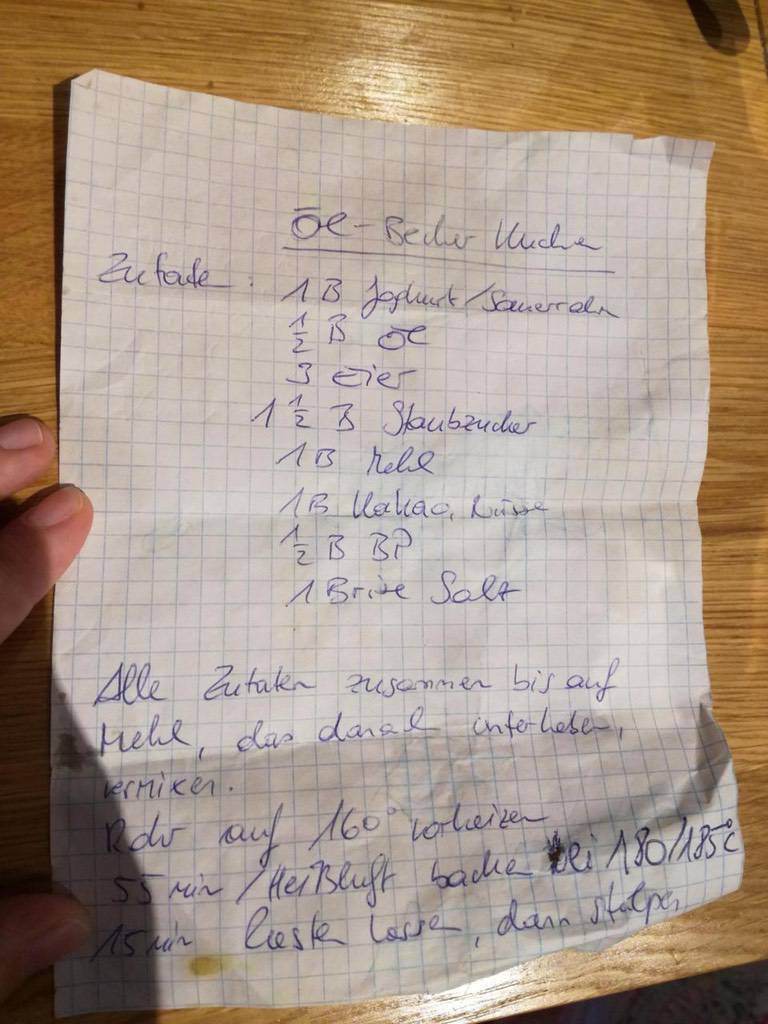 Öl-Becher Kuchen
Zutaten: 1 B Joghurt/Sauerrahm
1/2 B Öl
3 Eier
1 1/2 B Staubzucker
1 B Mehl
1 B Kakao, Nüsse
1/2 B BP
1 Brise Salz
Alle Zutaten zusammen bis auf
Mehl, das danach unterheben,
vermixen.
Rohr auf 160° vorheizen
55 min / Heißluft backen bei 180/185°C
15 min rasten lassen, dann stülpen